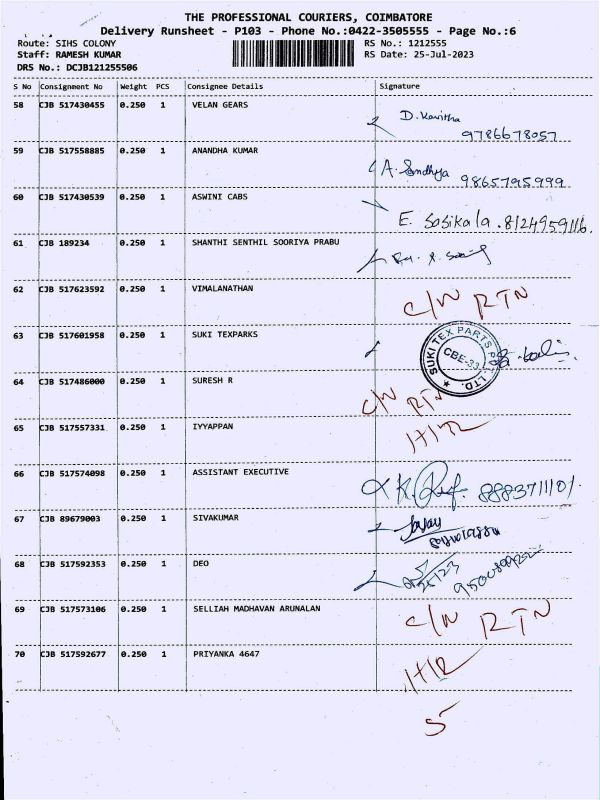 THE PROFESSIONAL COURIERS, COIMBATORE
Delivery Runsheet - P103 - Phone No.:0422-3505555 - Page No.:6
Route: SIHS COLONY RS No.: 1212555
Staff: RAMESH KUMAR RS Date: 25-Jul-2023
DRS No.: DCJB121255506
S No Consignment No Weight PCS Consignee Details Signature
58 CJB 517430455 0.250 1 VELAN GEARS D. Kavitha
9786678057
59 CJB 517558885 0.250 1 ANANDHA KUMAR A. Sandhya 9865795999
60 CJB 517430539 0.250 1 ASWINI CABS E. Sasikala . 8124959116.
61 CJB 189234 0.250 1 SHANTHI SENTHIL SOORIYA PRABU
62 CJB 517623592 0.250 1 VIMALANATHAN C/N RTN
63 CJB 517601958 0.250 1 SUKI TEXPARKS SUKI TEX PARTS PVT. LTD. CBE-33
64 CJB 517486000 0.250 1 SURESH R C/N RTN
65 CJB 517557331 0.250 1 IYYAPPAN
66 CJB 517574098 0.250 1 ASSISTANT EXECUTIVE 8883711101
67 CJB 89679003 0.250 1 SIVAKUMAR
68 CJB 517592353 0.250 1 DEO
69 CJB 517573106 0.250 1 SELLIAH MADHAVAN ARUNALAN C/N RTN
70 CJB 517592677 0.250 1 PRIYANKA 4647
5